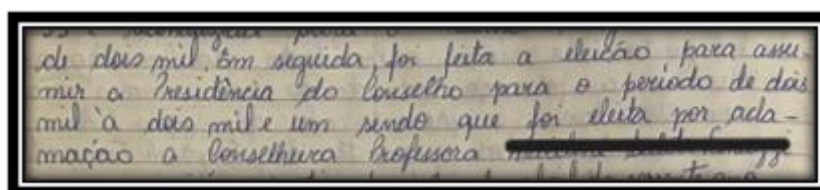 de dois mil. Em seguida, foi feita a eleicão para assu-
mir a Presidência do Conselho para o periodo de dois
mil à dois mil e um sendo que foi eleita por acla-
mação a Conselheira Professora